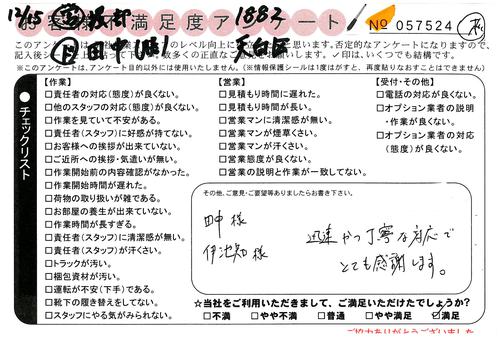 12/15 営 阿部 1883
お客様 満足度アンケート No 057524
ド 田中(時) 天白区
このアンケートは
のレベル向上に
思います。否定的なアンケートになりますので、
記入後
貼って下
数多くの正直な
✓印は、いくつでも結構です。
※このアンケートは、アンケート目的以外には使用いたしません。(※情報保護シールは1度はがすと、再度貼りなおすことはできません)
チェックリスト
【作業】
□責任者の対応(態度)が良くない。
□他のスタッフの対応(態度)が良くない。
□作業を見ていて不安がある。
□責任者(スタッフ)に好感が持てない。
□お客様への挨拶が出来ていない。
□ご近所への挨拶・気遣いが無い。
□作業開始前の内容確認がなかった。
□作業開始時間が遅れた。
□荷物の取り扱いが雑である。
□お部屋の養生が出来ていない。
□作業時間が長すぎる。
□責任者(スタッフ)に清潔感が無い。
□責任者(スタッフ)が汗くさい。
□トラックが汚い。
□梱包資材が汚い。
□運転が不安(下手)である。
□靴下の履き替えをしてない。
□スタッフにやる気がみられない。
【営業】
□見積もり時間に遅れた。
□見積もり時間が長い。
□営業マンに清潔感が無い。
□営業マンが煙草くさい。
□営業マンが汗くさい。
□営業態度が良くない。
□営業の説明と作業が一致してない。
【受付・その他】
□電話の対応が良くない。
□オプション業者の説明
・作業が良くない。
□オプション業者の対応
(態度)が良くない。
その他、ご意見・ご要望等ありましたらお書き下さい。
田中様
伊池知様
迅速かつ丁寧な対応で
とても感謝します。
☆当社をご利用いただきまして、ご満足いただけたでしょうか?
□不満 □やや不満 □普通 □やや満足 ☑満足
ご協力ありがとうございました